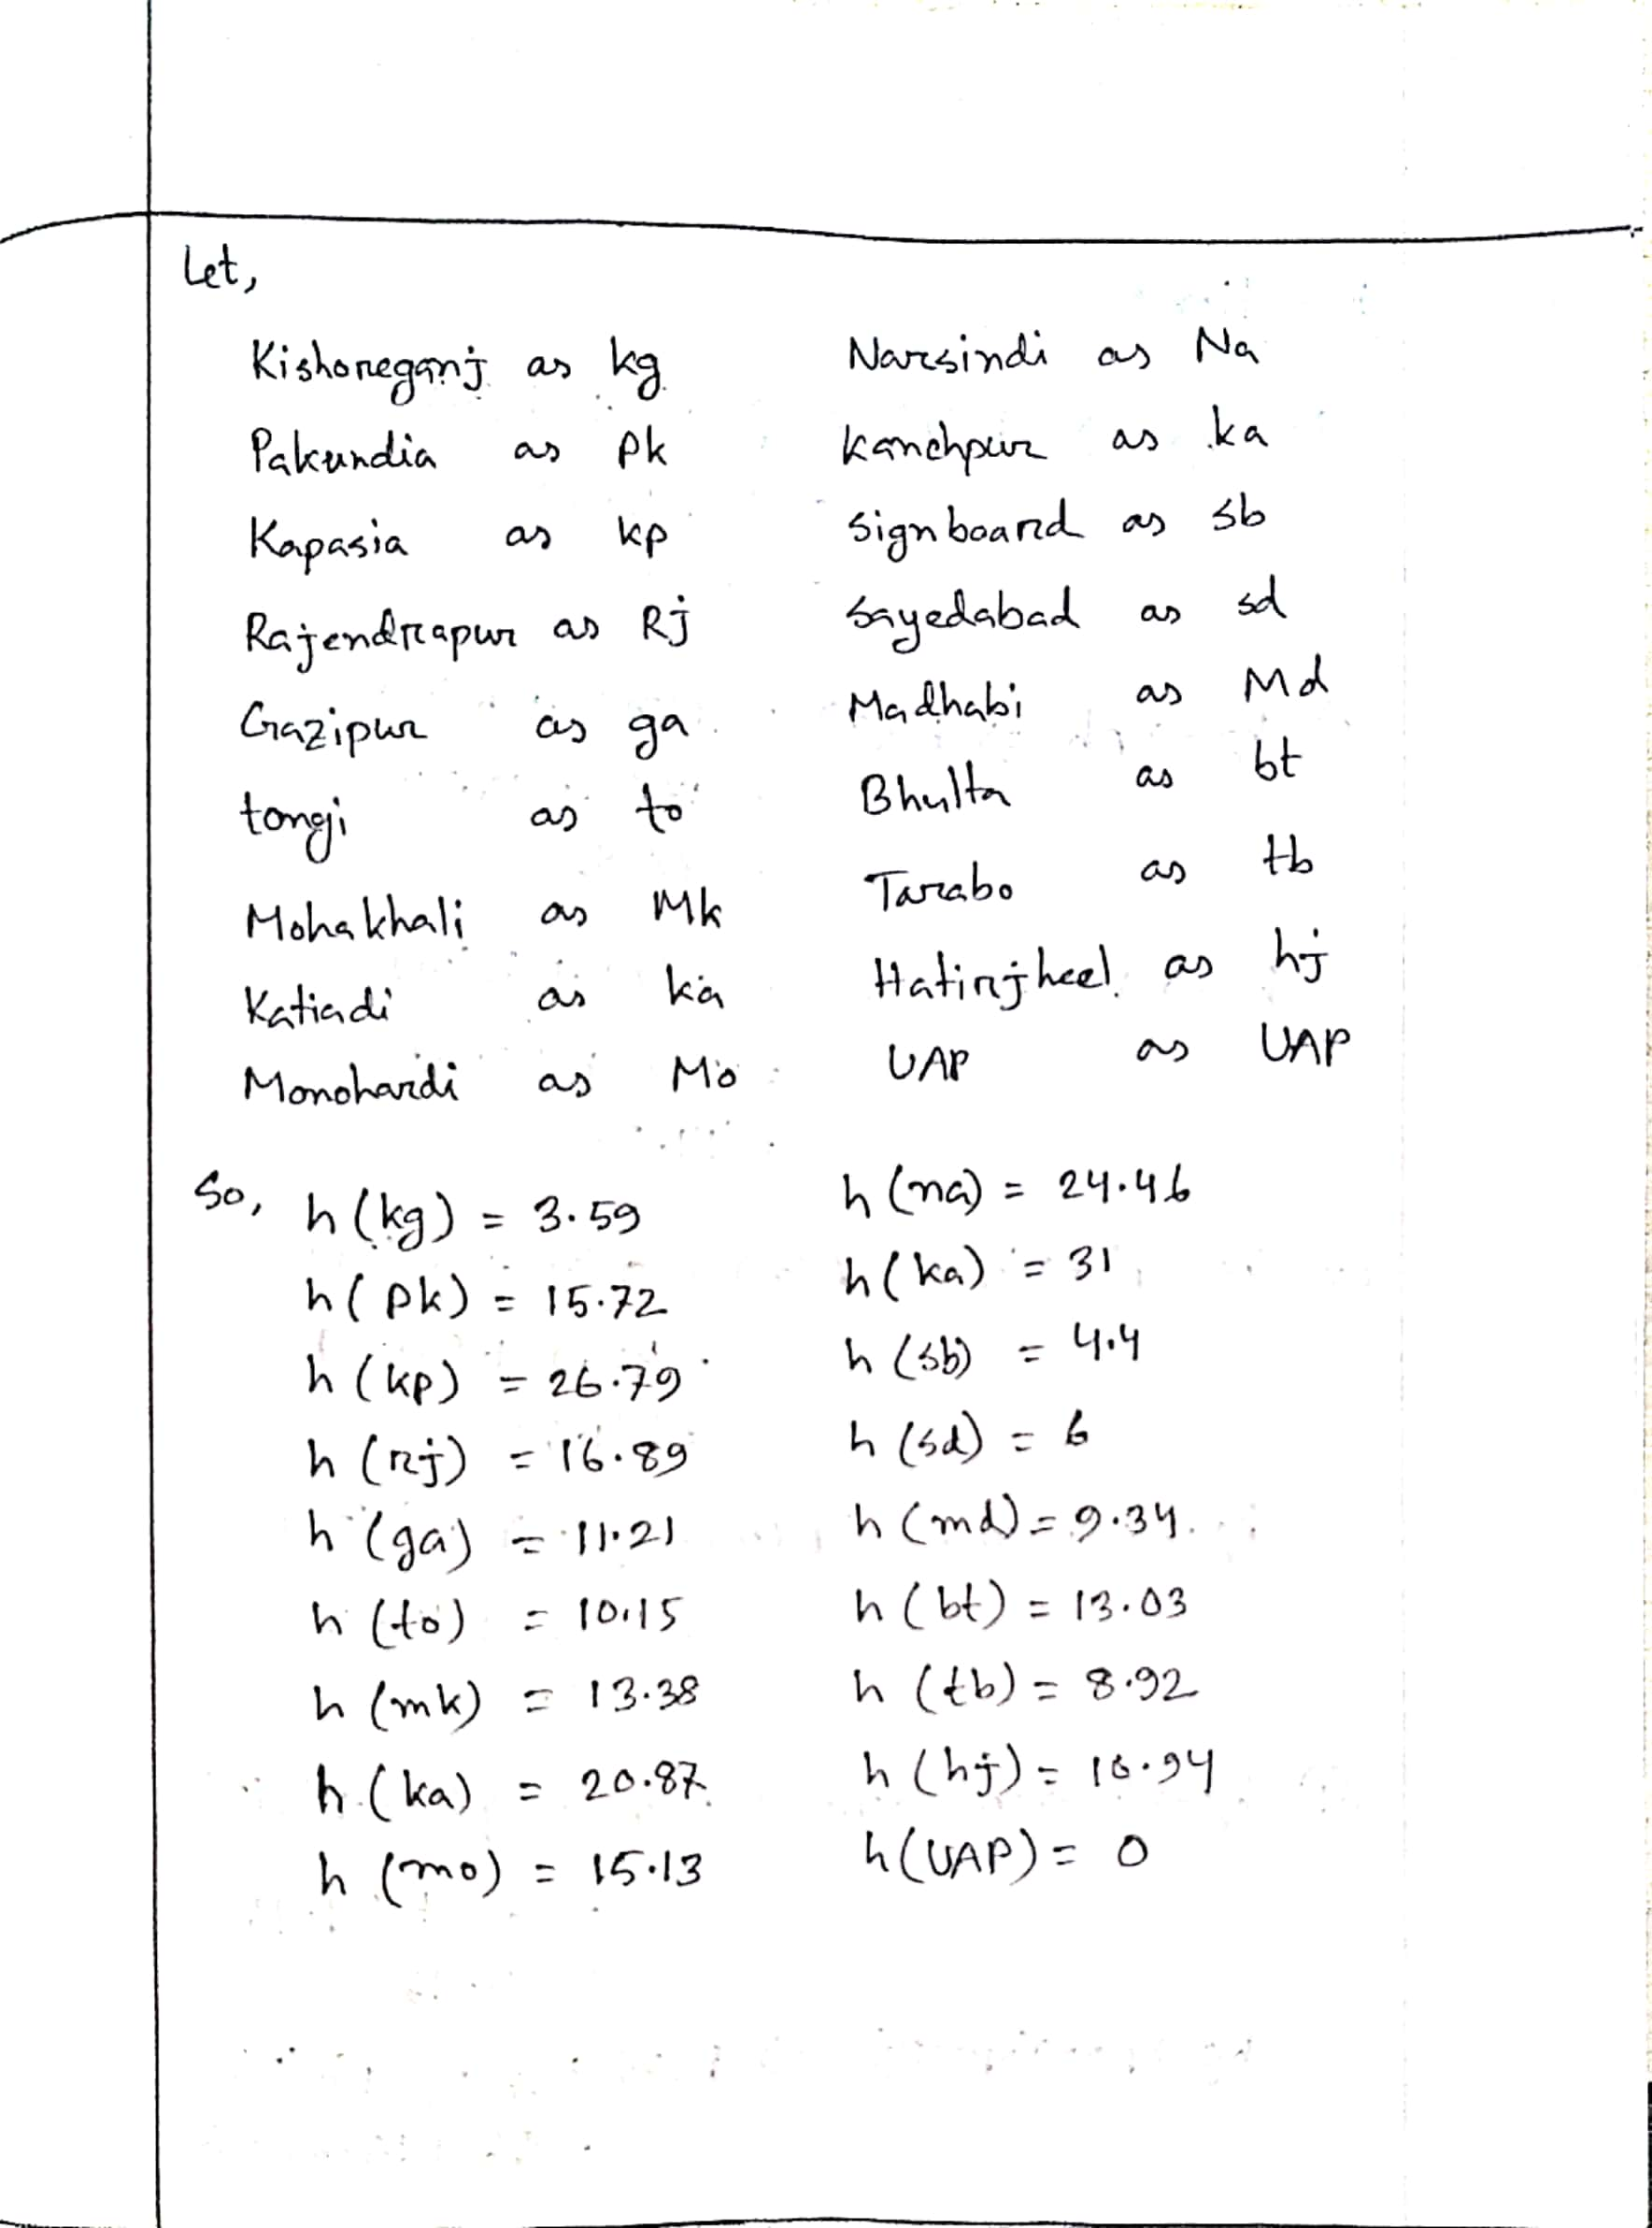 Let,
Kishoreganj as kg
Pakundia as pk
Kapasia as kp
Rajendrapur as Rj
Gazipur as ga
tongi as to
Mohakhali as Mk
Katiadi as ka
Monohardi as Mo
Narsindi as Na
Kanchpur as ka
Signboard as sb
Sayedabad as sd
Madhabi as Md
Bhulta as bt
Tarabo as tb
Hatirjheel as hj
UAP as UAP
So, h(kg) = 3.59
h(pk) = 15.72
h(kp) = 26.79
h(rj) = 16.89
h(ga) = 11.21
h(to) = 10.15
h(mk) = 13.38
h(ka) = 20.87
h(mo) = 15.13
h(na) = 24.46
h(ka) = 31
h(sb) = 4.4
h(sd) = 6
h(md) = 9.34
h(bt) = 13.03
h(tb) = 8.92
h(hj) = 16.94
h(UAP) = 0